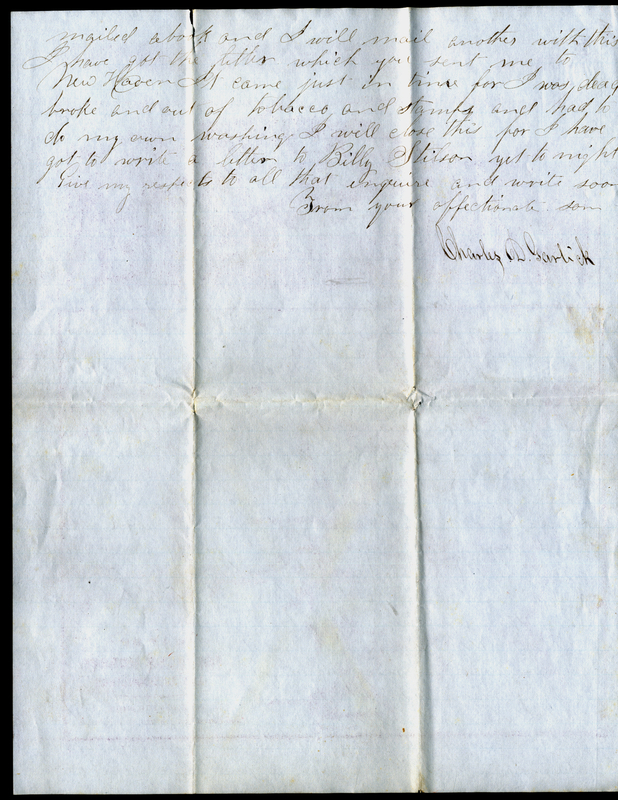 mailed about and I will mail another with this
I have got the letter which you sent me to
New Haven It came just in time for I was dead
broke and out of tobacco and stamps and had to
do my own washing I will close this for I have
got to write a letter to Billy Stilson yet to night
Give my respects to all that inquire and write soon
From your affectionate son
Charles D. Garlick